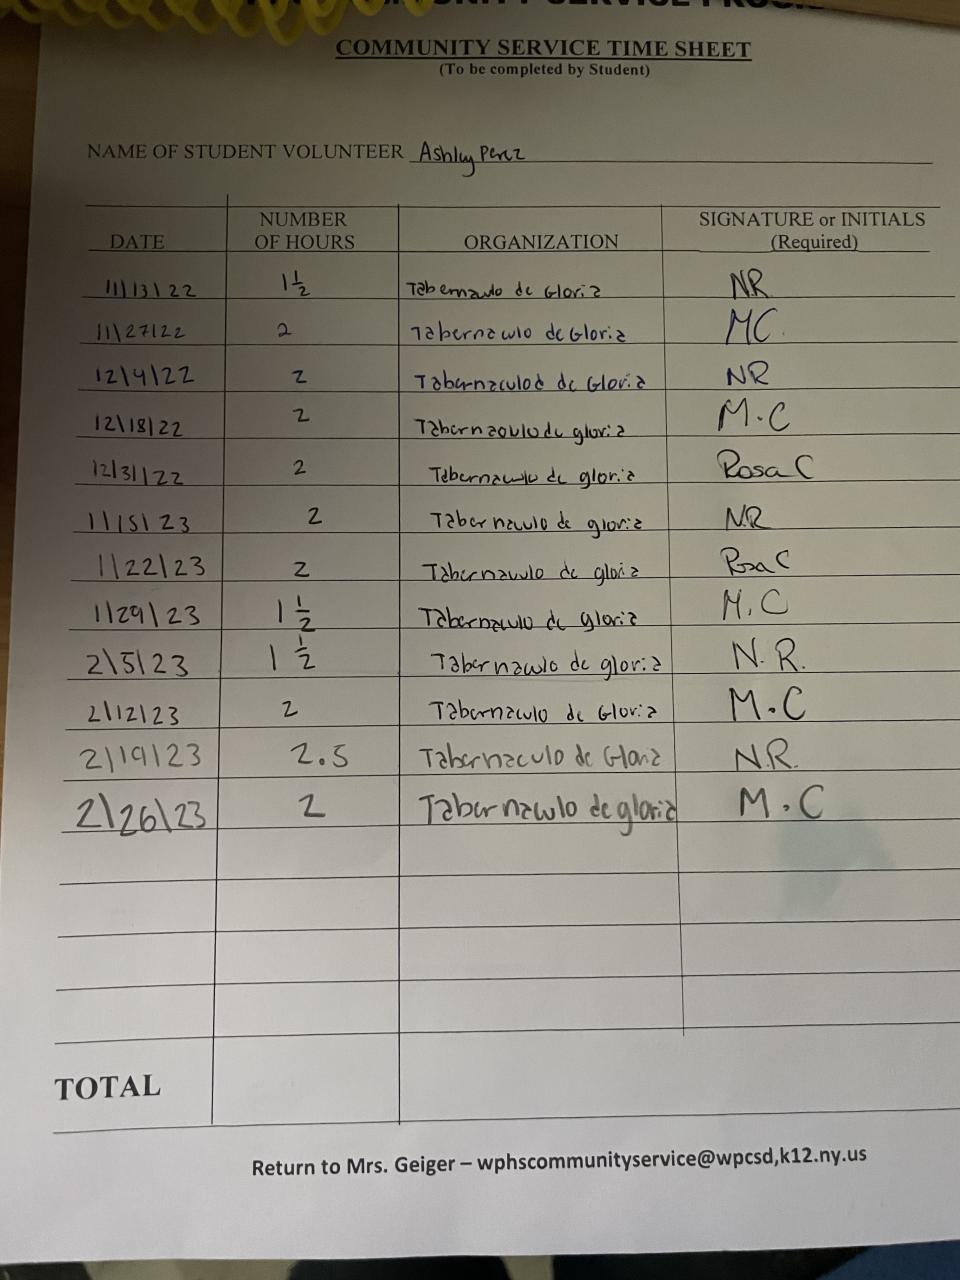 COMMUNITY SERVICE TIME SHEET
(To be completed by Student)
NAME OF STUDENT VOLUNTEER Ashly Perez
DATE NUMBER OF HOURS ORGANIZATION SIGNATURE or INITIALS (Required)
11/13/22 1 1/2 Tabernaulo de Gloria NR
11/27/22 2 Tabernaculo de Gloria MC
12/4/22 2 Tabernaculod de Gloria NR
12/18/22 2 Tabernaculo de gloria M.C
12/31/22 2 Tabernaculo de gloria Rosa C
1/15/23 2 Tabernaculo de gloria N.R
1/22/23 2 Tabernaculo de gloria Rosa C
1/29/23 1 1/2 Tabernaculo de gloria M.C
2/5/23 1 1/2 Tabernaculo de gloria N.R.
2/12/23 2 Tabernaculo de Gloria M.C
2/19/23 2.5 Tabernaculo de Gloria N.R.
2/26/23 2 Tabernaculo de gloria M.C
TOTAL
Return to Mrs. Geiger – wphscommunityservice@wpcsd,k12.ny.us